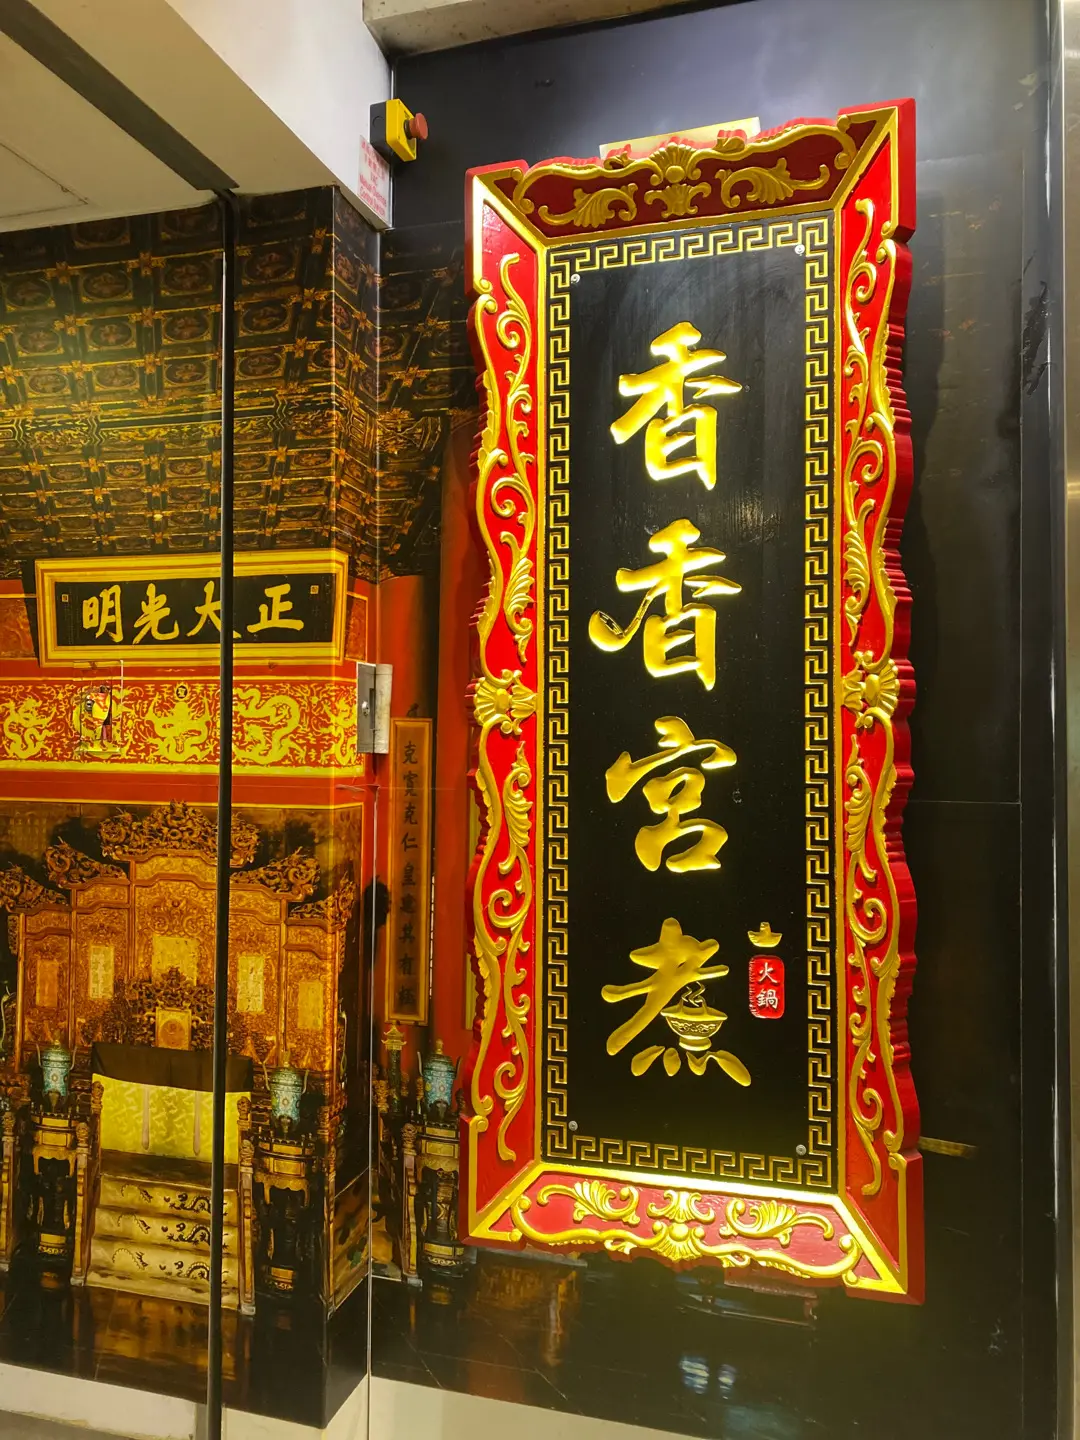 香香宮煮
火鍋
正大光明
克寬克仁皇建其有極